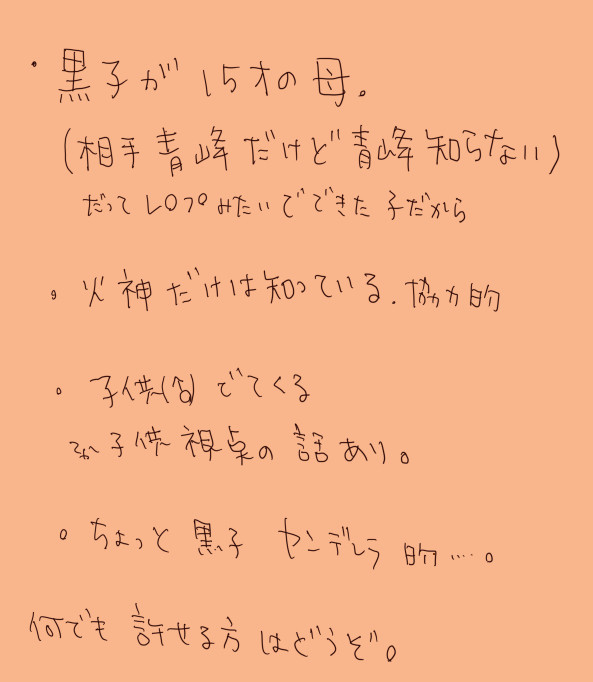 ・黒子が15才の母。
(相手青峰だけど青峰知らない)
だってレ○プみたいでできた子だから
・火神だけは知っている.協力的
・子供(♂)でてくる
てか子供視点の話あり。
・ちょっと黒子センデレラ的…。
何でも許せる方はどうぞ。